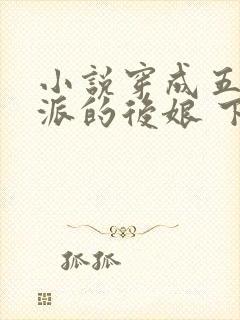 小說穿成五
派的後娘 下
狐狐